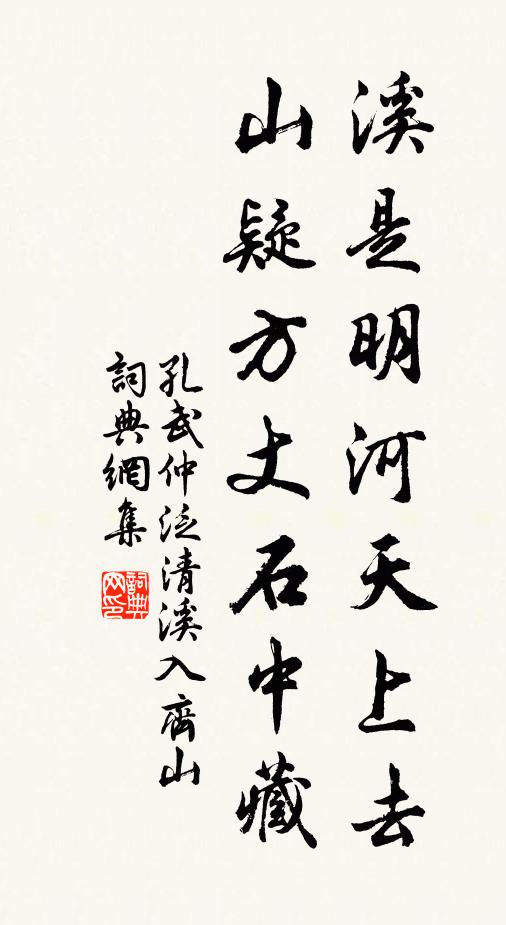 溪是明河天上去
山疑方丈石中藏
孔武仲泛清溪入齊山
詞典網集
詞典網印